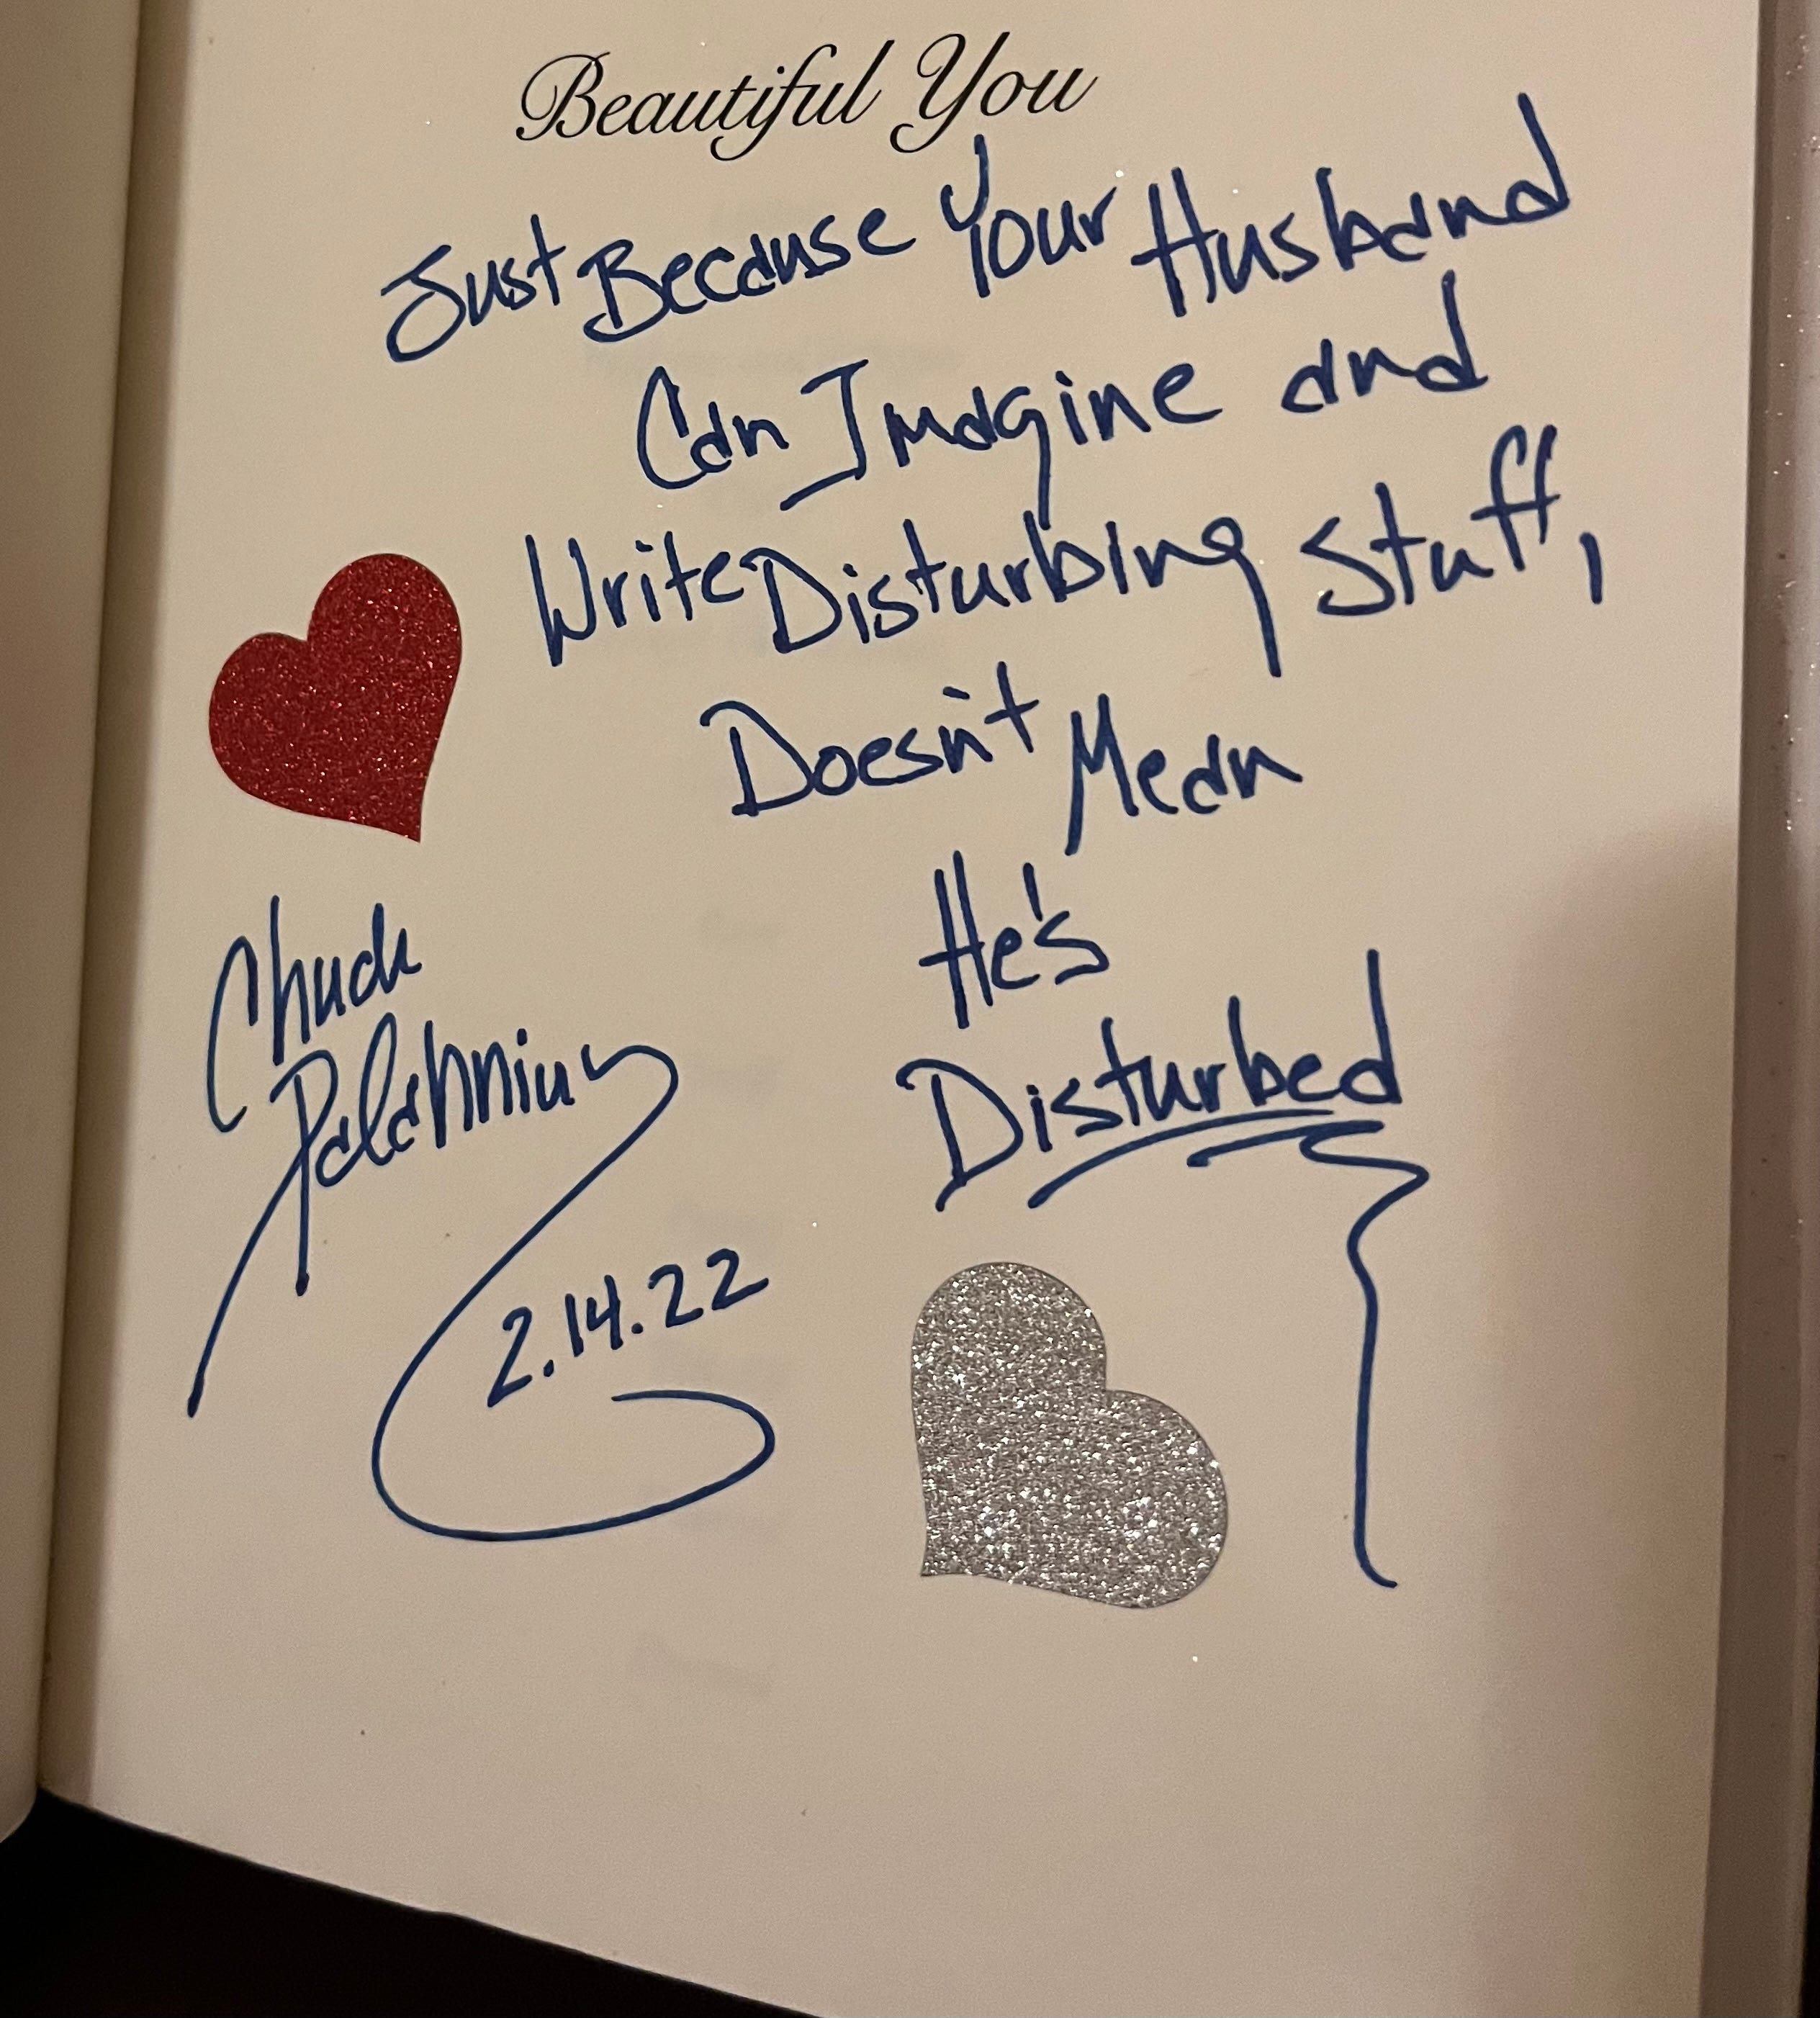 Beautiful You
Just Because Your Husband
Can Imagine and
Write Disturbing Stuff,
Doesn't Mean
He's
Disturbed
Chuck
Palahniuk
2.14.22